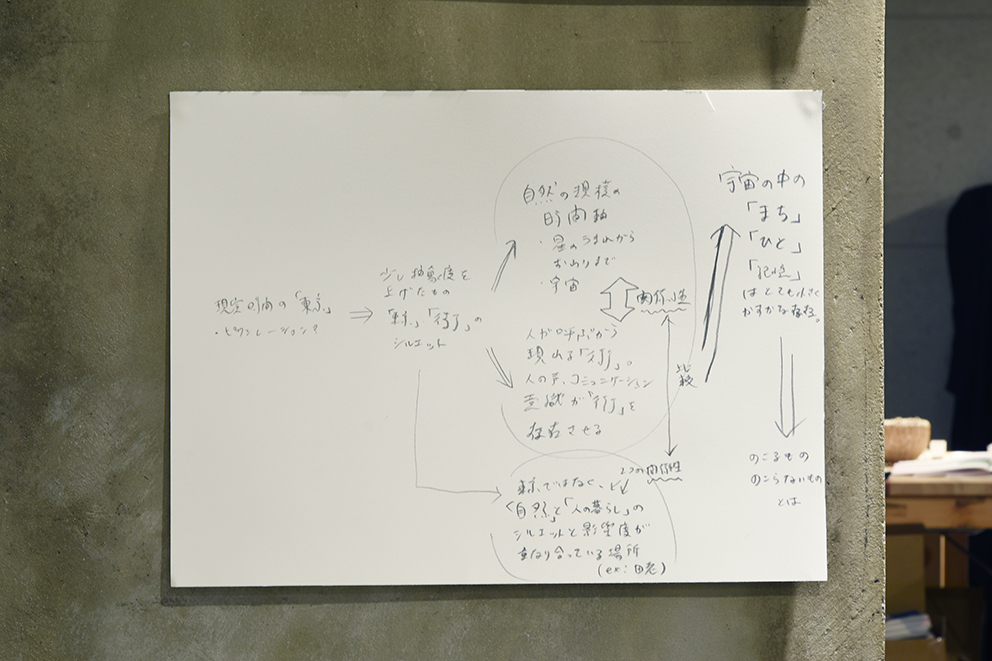 現空間の「東京」
・ビブレーション?
少し抽象度を
上げたもの
「東京」「街」の
シルエット
自然の規模の
時間軸
・星のうまれから
おわりまで
・宇宙
関係性
人が呼ぶから
現れる「街」。
人の声、コミュニケーション
意識が「街」を
存在させる
比較
2つの関係性
東京ではなく、
「自然」と「人の暮らし」の
シルエットと影響度が
重なり合っている場所
(ex:田老)
宇宙の中の
「まち」
「ひと」
「記憶」
はとても小さく
かすかな存在。
のこるもの
のこらないもの
とは